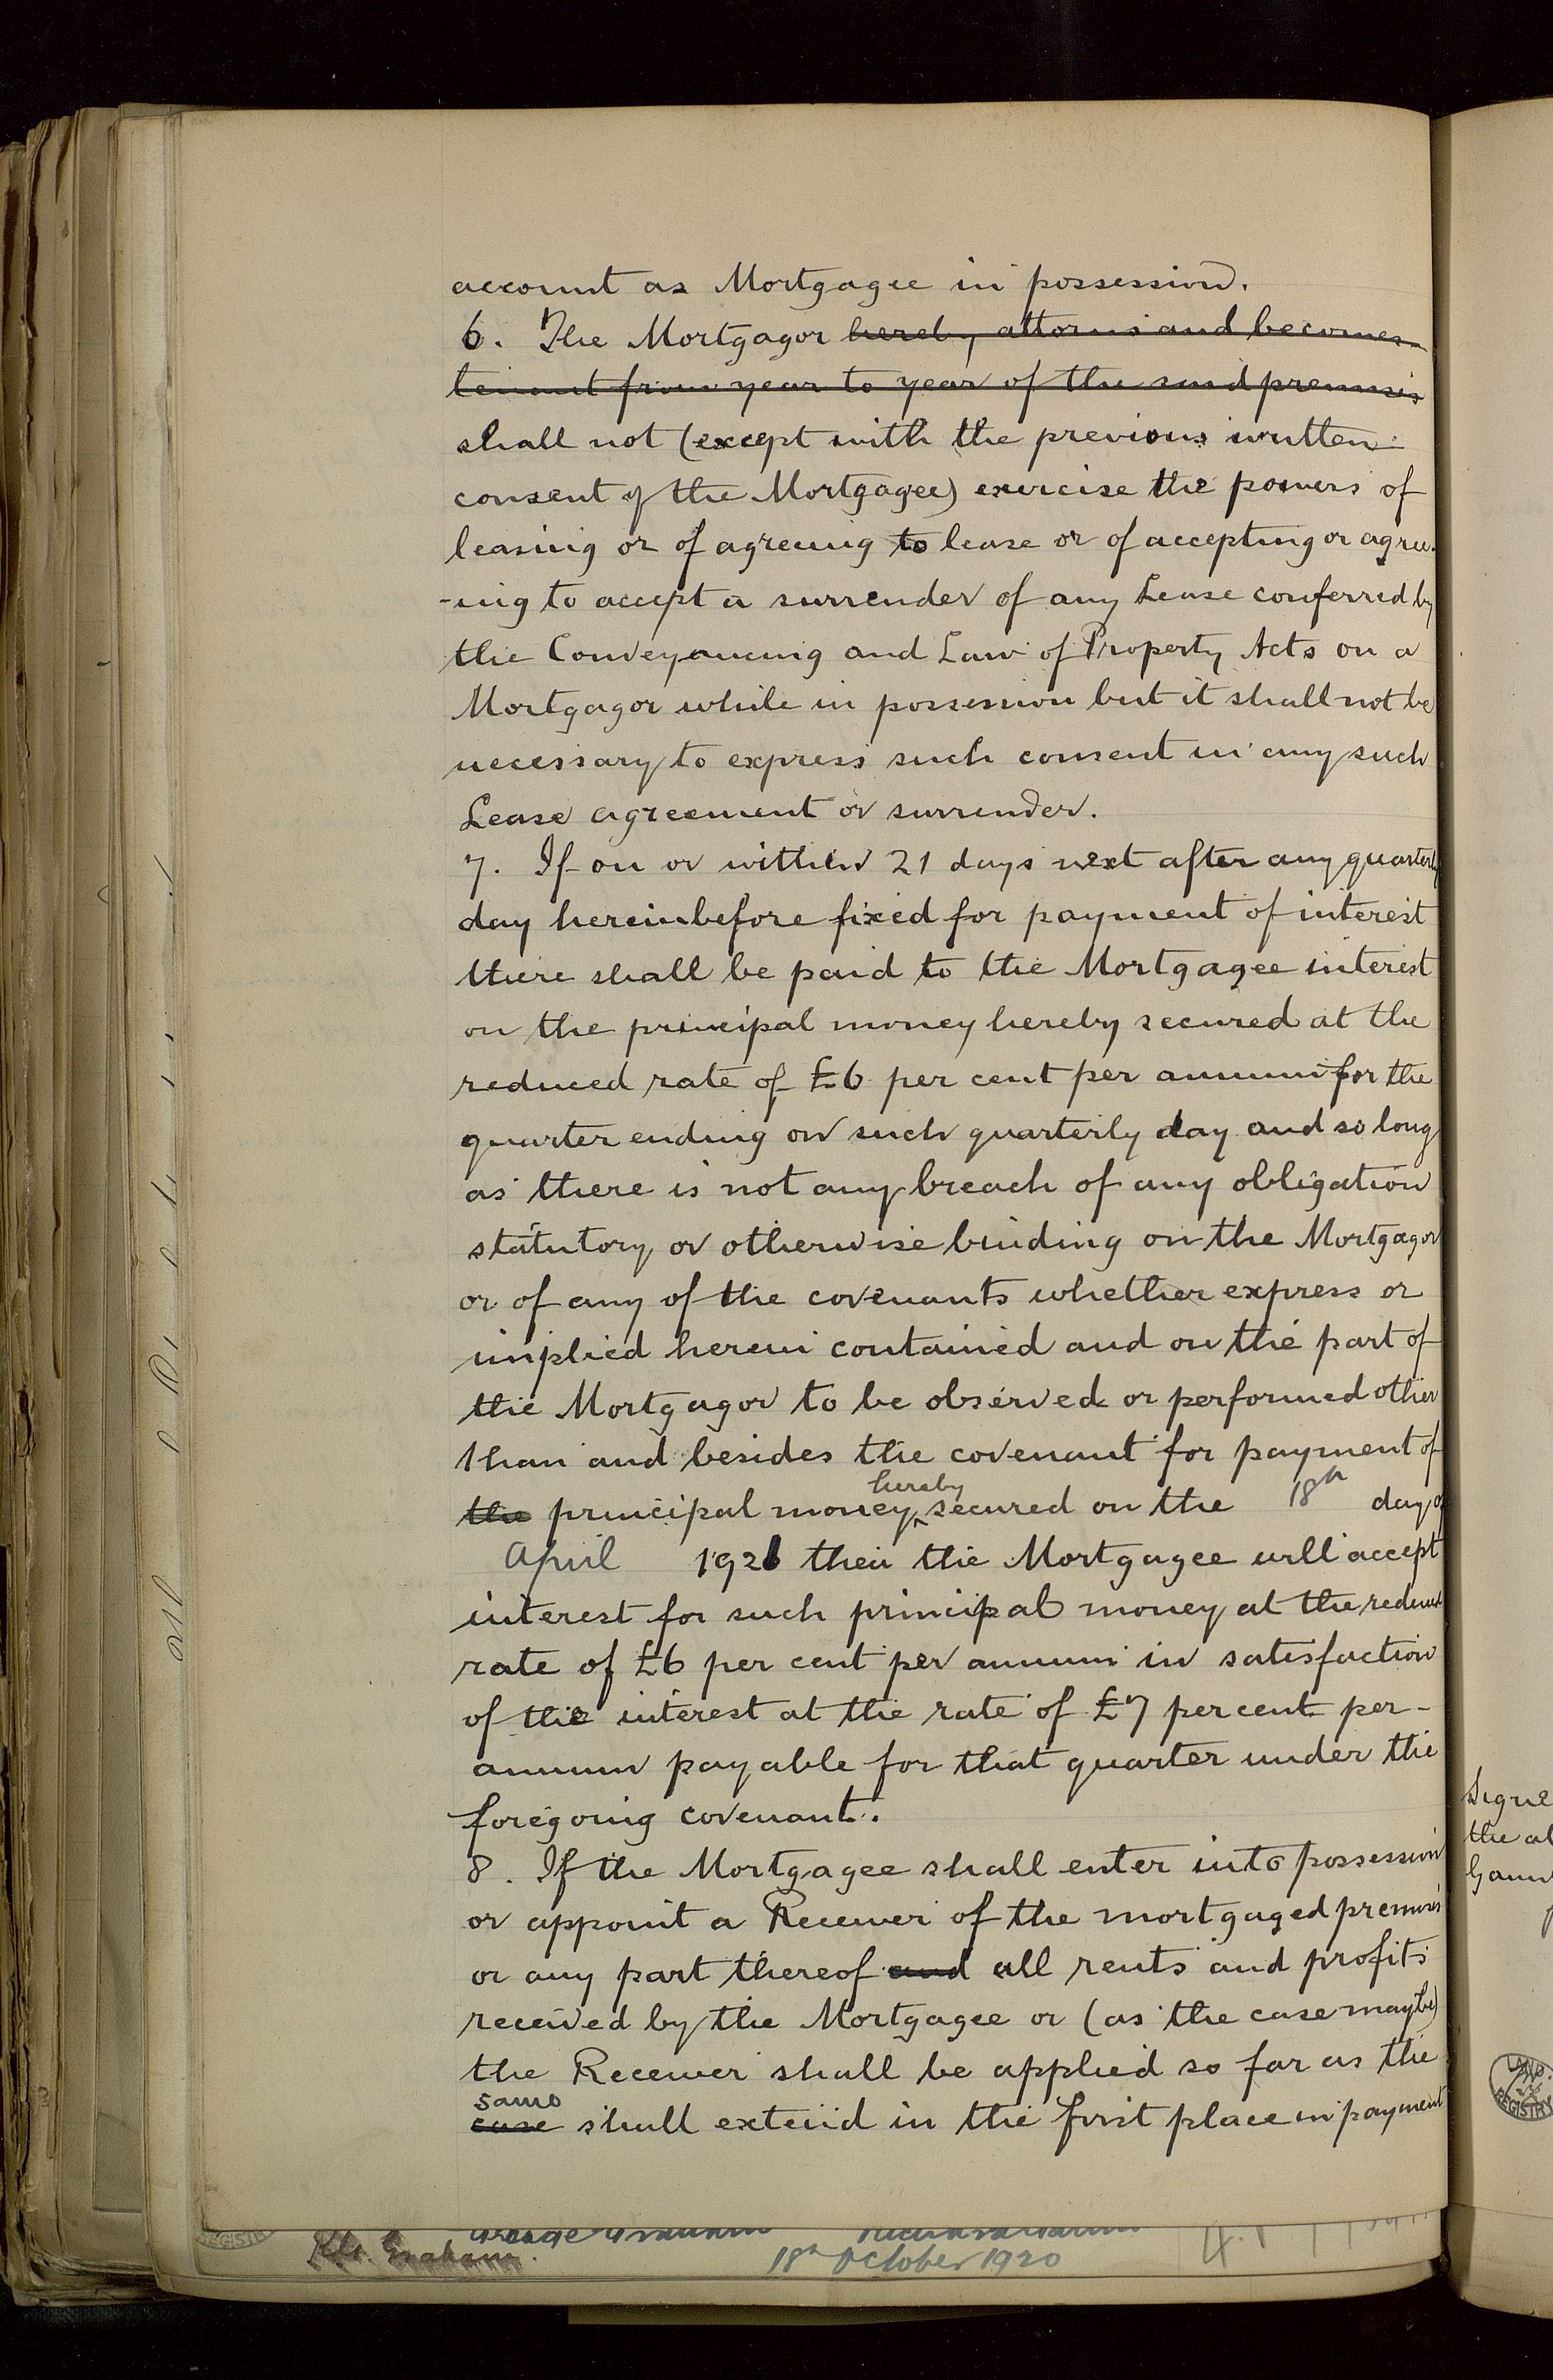 account as Mortgagee in possession.
6. The Mortgagor hereby attorns and becomes
tenant from year to year of the said premises
shall not (except with the previous written
consent of the Mortgagee) exercise the powers of
leasing or of agreeing to lease or of accepting or agree-
-ing to accept a surrender of any Lease conferred by
the Conveyancing and Law of Property Acts on a
Mortgagor while in possession but it shall not be
necessary to express such consent in any such
Lease agreement or surrender.
7. If on or within 21 days next after any quarterly
day hereinbefore fixed for payment of interest
there shall be paid to the Mortgagee interest
on the principal money hereby secured at the
reduced rate of £6 per cent per annum for the
quarter ending on such quarterly day and so long
as there is not any breach of any obligation
statutory or otherwise binding on the Mortgagor
or of any of the covenants whether express or
implied herein contained and on the part of
the Mortgagor to be observed or performed other
than and besides the covenant for payment of
hereby
the principal money secured on the 18th day of
April 1921 then the Mortgagee will accept
interest for such principal money at the reduced
rate of £6 per cent per annum in satisfaction
of the interest at the rate of £7 per cent per-
annum payable for that quarter under the
foregoing covenant.
8. If the Mortgagee shall enter into possession
or appoint a Receiver of the mortgaged premises
or any part thereof and all rents and profits
received by the Mortgagee or (as the case may be)
the Receiver shall be applied so far as the
same
case shall extend in the first place in payment
Graham.
18th October 1920
Signe
the a
LAND
REGISTRY